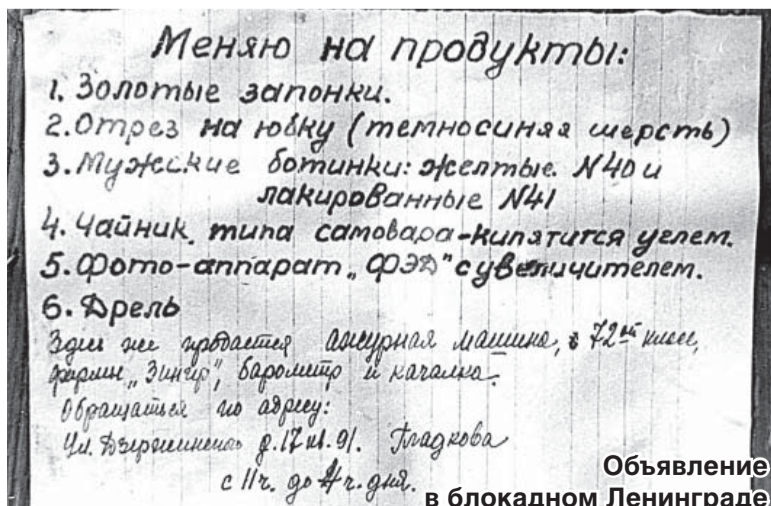 Меняю на продукты:
1. Золотые запонки.
2. Отрез на юбку (темносиняя шерсть)
3. Мужские ботинки: желтые N40 и
лакированные N41
4. Чайник типа самовара-кипятится углем.
5. Фото-аппарат „ФЭД" с увеличителем.
6. Дрель
Здесь же продается ажурная машина, 72ой класс,
фирмы „Зингер", барометр и качалка.
Обращаться по адресу:
Ул. Дзержинского д.17 кв.91. Гладкова
с 11ч. до 4ч. дня.
Объявление
в блокадном Ленинграде